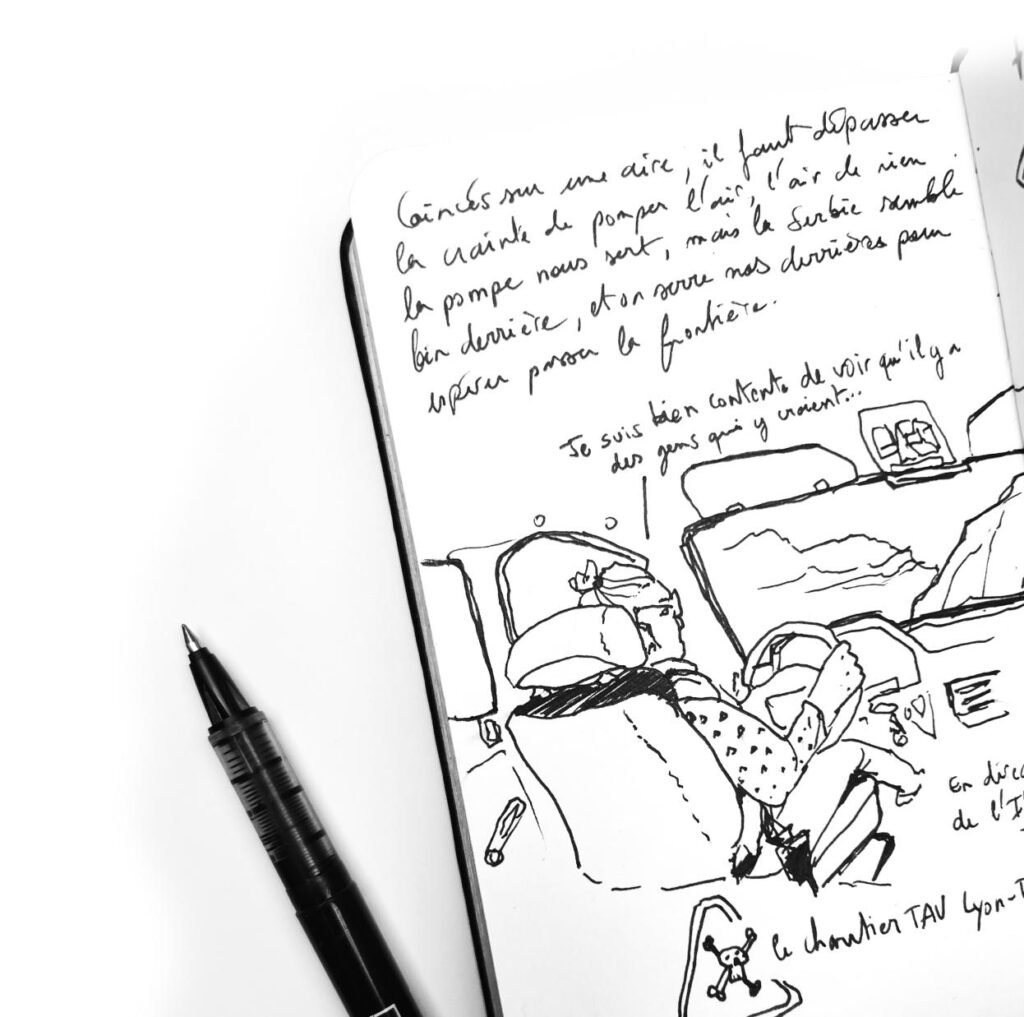 Coincés sur une aire, il faut dépasser
la crainte de pomper l'air, l'air de rien
la pompe nous sert, mais la Serbie semble
bien derrière, et on serre nos derrières pour
espérer passer la frontière.
Je suis bien contente de voir qu'il y a
des gens qui y croient...
En direc
de l'I
le chantier TAV Lyon-T